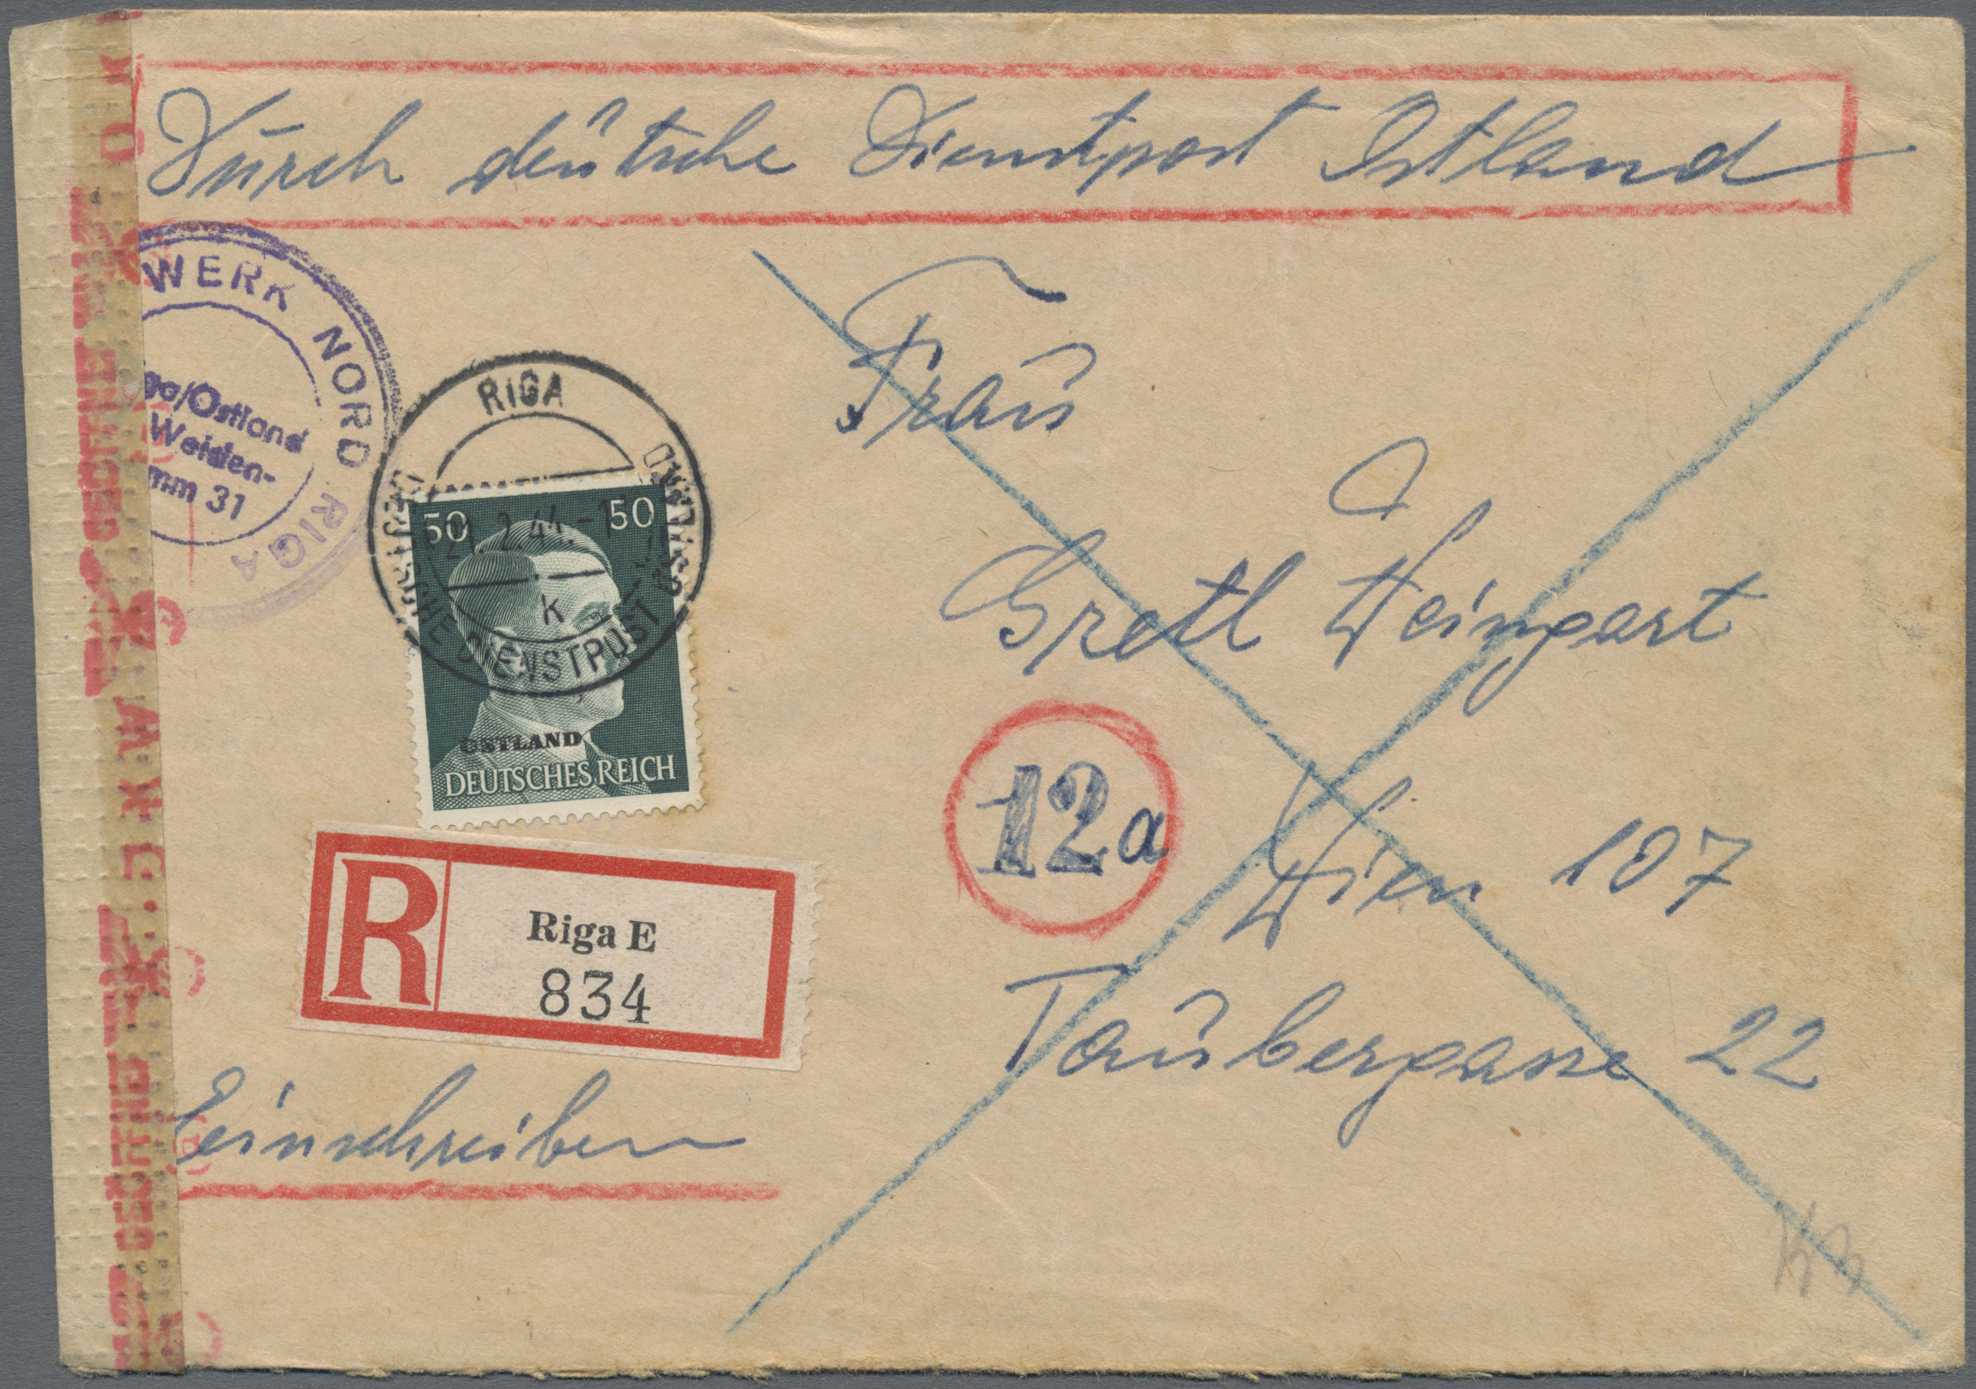 Durch deutsche Dienstpost Ostland
WERK NORD RIGA
Ostland
Weiden-
mm 31
RIGA
21.2.44.-1
k
DEUTSCHE DIENSTPOST OSTLAND
50 50
OSTLAND
DEUTSCHES REICH
Frau
Gretl Weingart
12a
Wien 107
Taubergasse 22
R
Riga E
834
Einschreiben